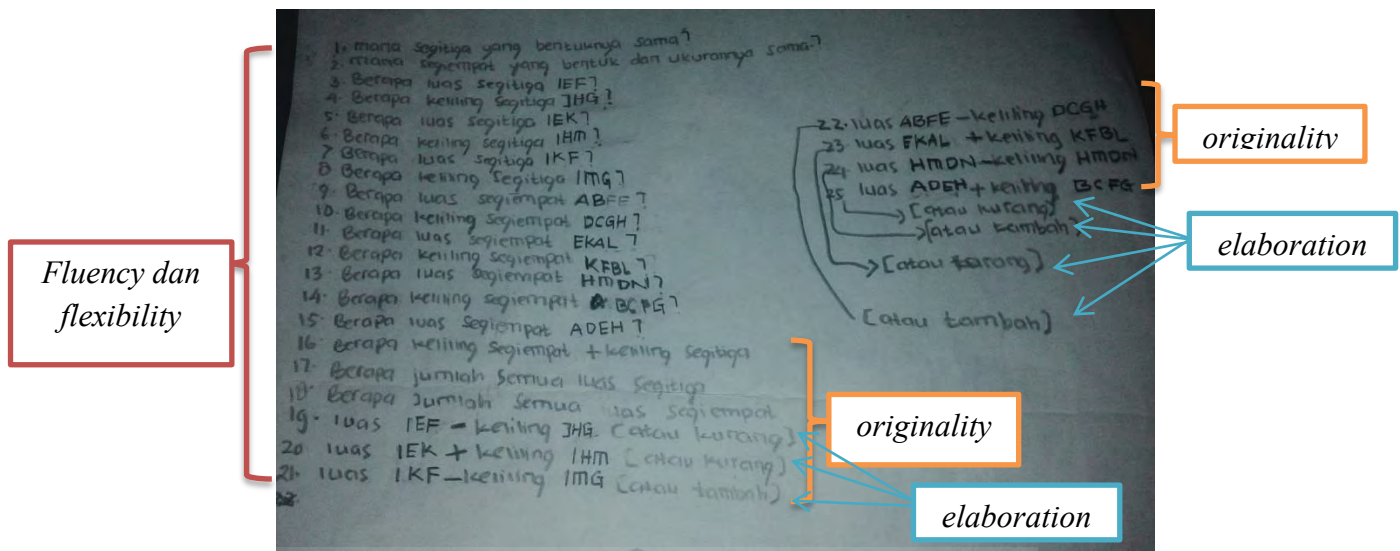 1. mana segitiga yang bentuknya sama?
2. mana segiempat yang bentuk dan ukurannya sama?
3. Berapa luas segitiga IEF?
4. Berapa keliling segitiga JHG?
5. Berapa luas segitiga IEK?
6. Berapa keliling segitiga IHM?
7. Berapa luas segitiga IKF?
8. Berapa keliling segitiga IMG?
9. Berapa luas segiempat ABFE?
10. Berapa keliling segiempat DCGH?
11. Berapa luas segiempat EKAL?
12. Berapa keliling segiempat KFBL?
13. Berapa luas segiempat HMDN?
14. Berapa keliling segiempat BCFG?
15. Berapa luas segiempat ADEH?
16. Berapa keliling segiempat + keliling segitiga
17. Berapa jumlah semua luas segitiga
18. Berapa Jumlah semua luas segiempat
19. luas IEF - keliling JHG [atau kurang]
20. luas IEK + keliling IHM [atau kurang]
21. luas IKF - keliling IMG [atau tambah]
22. luas ABFE - keliling DCGH
23. luas EKAL + keliling KFBL
24. luas HMDN - keliling HMDN
25. luas ADEH + keliling BCFG
[atau kurang]
[atau tambah]
[atau kurang]
[atau tambah]
Fluency dan
flexibility
originality
elaboration
originality
elaboration